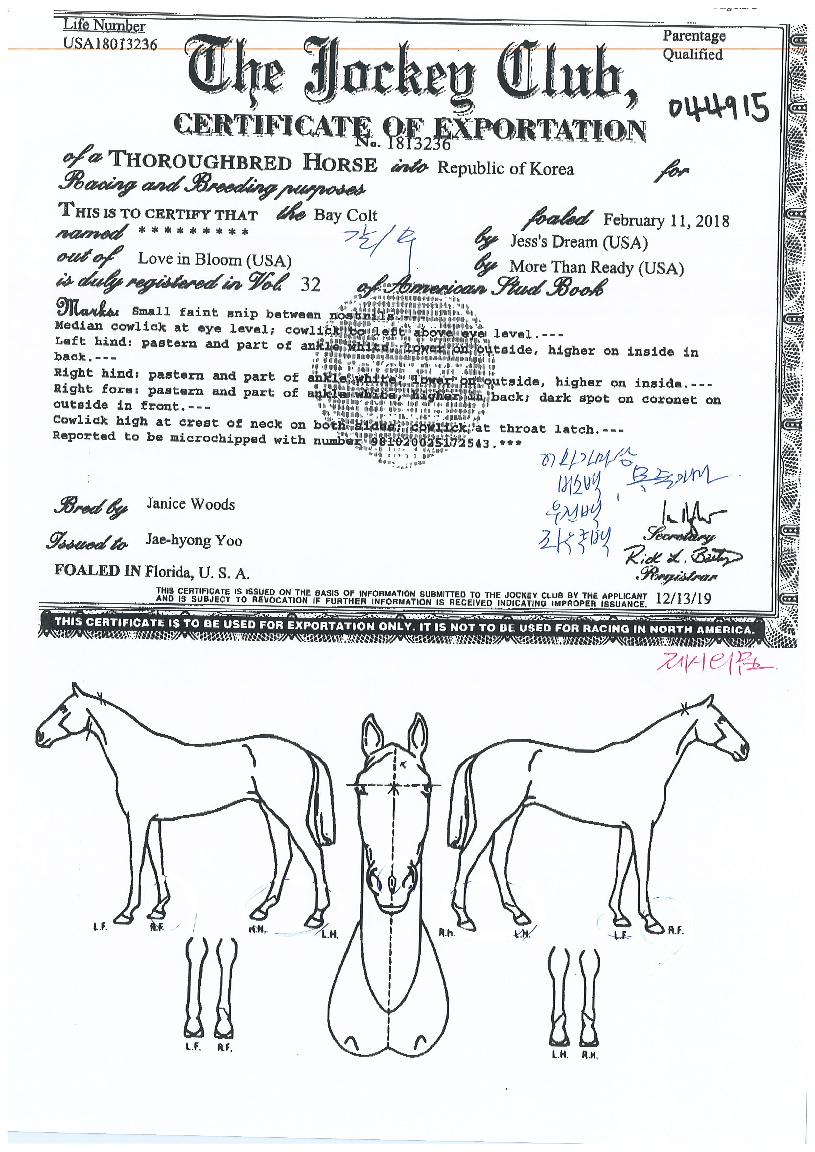 Life Number
USA18013236
Parentage
Qualified
The Jockey Club,
044915
CERTIFICATE OF EXPORTATION
No. 1813236
of a THOROUGHBRED HORSE into Republic of Korea for
Racing and Breeding purposes
THIS IS TO CERTIFY THAT the Bay Colt foaled February 11, 2018
named * * * * * * * * * by Jess's Dream (USA)
out of Love in Bloom (USA) by More Than Ready (USA)
is duly registered in Vol. 32 of American Stud Book
Marks: Small faint snip between nostrils.---
Median cowlick at eye level; cowlick to left above eye level.---
Left hind: pastern and part of ankle white, lower on outside, higher on inside in
back.---
Right hind: pastern and part of ankle white, lower on outside, higher on inside.---
Right fore: pastern and part of ankle white, higher in back; dark spot on coronet on
outside in front.---
Cowlick high at crest of neck on both sides; cowlick at throat latch.---
Reported to be microchipped with number 981020025172543.***
Bred by Janice Woods
Issued to Jae-hyong Yoo
Secretary
Registrar
FOALED IN Florida, U. S. A.
THIS CERTIFICATE IS ISSUED ON THE BASIS OF INFORMATION SUBMITTED TO THE JOCKEY CLUB BY THE APPLICANT
AND IS SUBJECT TO REVOCATION IF FURTHER INFORMATION IS RECEIVED INDICATING IMPROPER ISSUANCE. 12/13/19
THIS CERTIFICATE IS TO BE USED FOR EXPORTATION ONLY. IT IS NOT TO BE USED FOR RACING IN NORTH AMERICA.
L.F. R.F. R.H. L.H. R.H. L.H. L.F. R.F.
L.F. R.F. L.H. R.H.